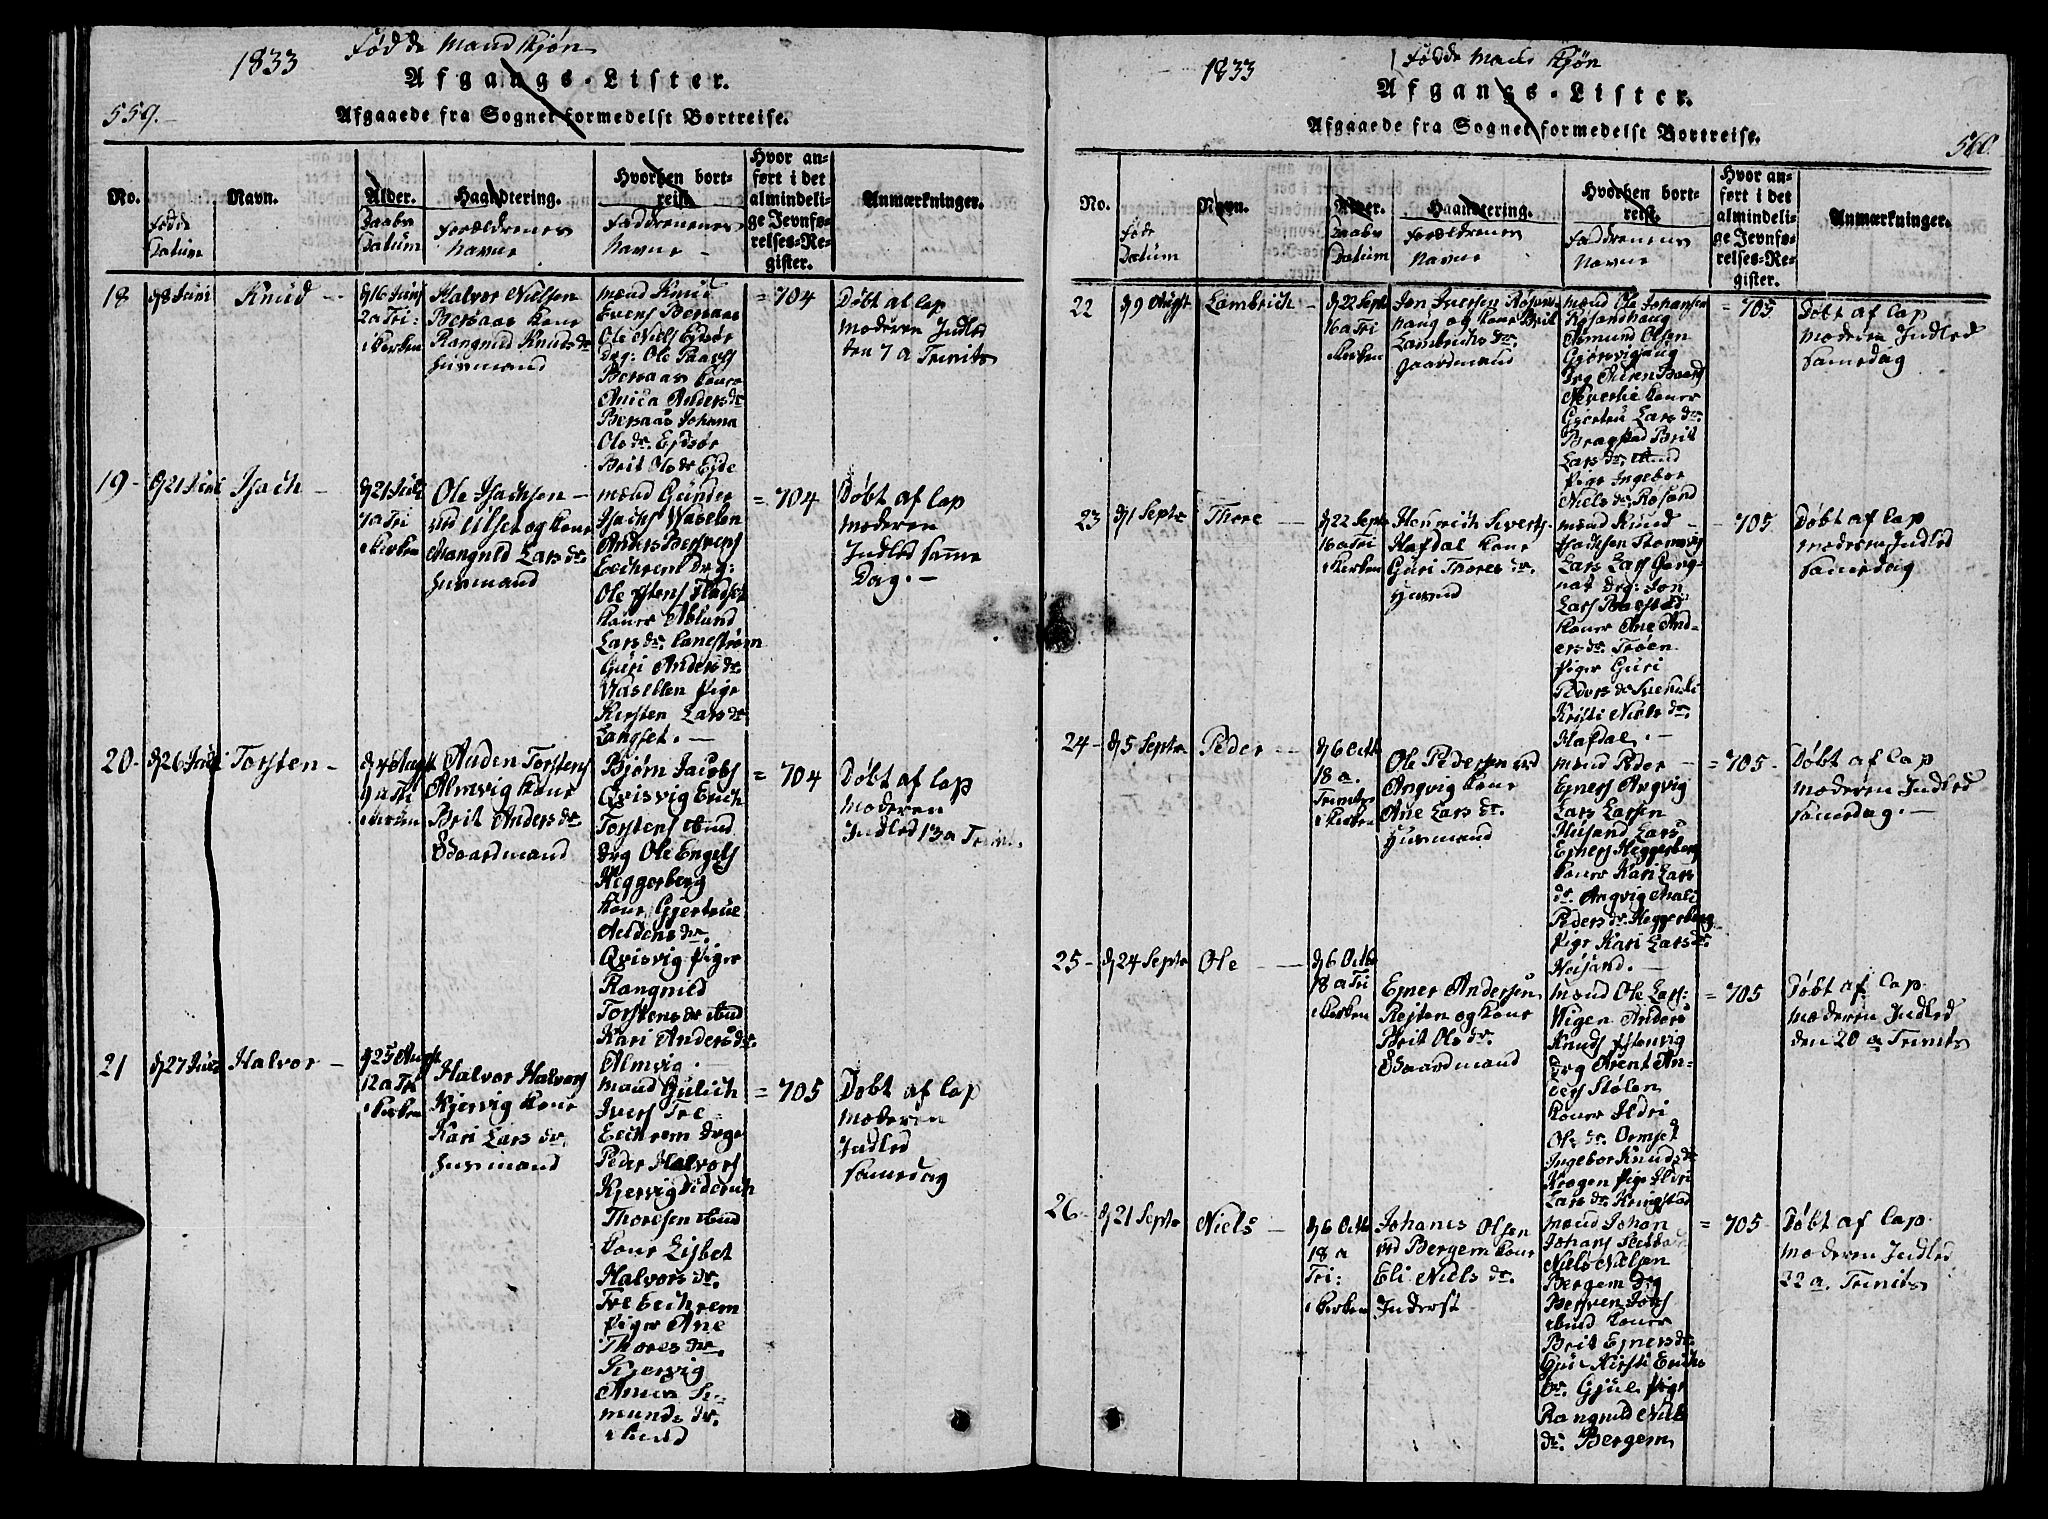 1833 Fødde Mand Kjøn
Afgangs-Lister.
559.
Afgaaede fra Sognet formedelst Bortreise.
No.
Navn.
Alder.
Haandtering.
Hvorhen bort-
reist.
Hvor an-
ført i det
almindeli-
ge Jevnfø-
relses-Re-
gister.
Anmærkninger.
Fødde
Datum
Daabs
Datum
Forældrenes
Navne
Faddrenenes
Navne
18
d 8 Juni
Knud
d 16 Juni
2 a Tri:
i Kirken
Halvor Nielsen
Bersaas Kone
Rangnild Knuds dr
Husmand
Mænd Knud
Evens Bersaas
Ole Niels Ejdsør
Drg: Ole Paals
Bersaas Koner
Anica Anders dr
Bersaas Johana
Ols dr. Ejdsør
Brit Ols dr Ejde
= 704
Døbt af Cap
Moderen Indled
den 7 a Trinits
19
d 21 Juli
Isach
d 21 Juli
7 a Tri
i Kirken
Ole Isachsen
ved Ulset og Kone
Rangnild Lars dr
Husmand
Mænd Gunder
Isachs Waselen
Anders Bersvens
Eechrem Drg:
Ole
Koner
Lars dr.
Guri Anders dr
Waselen Pige
Kersten Lars dr
Langset.
= 704
Døbt af Cap
Moderen
Indled samme
Dag.
20
d 26 Juli
Torsten
d 4 August
9 a Tri
i Kirken
Anden Torstens
Almvig Kone
Brit Anders dr
Gaardmand
Bjørn Jacobs
Qvisvig Erich
Torstens ibid
Drg Ole Engels
Heggerberg
Kone Gjertrue
Qvisvig Piger
Rangnild
Torstens dr ibid
Kari Anders dr
Almvig.
= 704
Døbt af Cap
Moderen
Indled 13 a Trinit.
21
d 27 Juli
Halvor
d 25 August
12 a Tri
i Kirken
Halvor Halvors
Kjervig Kone
Kari Lars dr
Husmand
Mand Gulich
Ivers Tre
Eechrem Drge
Peder Halvors
Kjervig Diderich
Thoresen ibid
Kone Lisbet
Halvors dr
Tre Eechrem
Piger Ane
Thores dr.
Kjervig
munds dr.
ibid
= 705
Døbt af Cap
Moderen
Indled
samedag
1833 Fødde Mands Kjøn
Afgangs-Lister.
Afgaaede fra Sognet formedelst Bortreise.
560.
No.
Navn.
Alder.
Haandtering.
Hvorhen bort-
reist.
Hvor an-
ført i det
almindeli-
ge Jevnfø-
relses-Re-
gister.
Anmærkninger.
Føde
Datum
Daabs
Datum
Forældrenes
Navne
Faddrenenes
Navne
22
d 9 Augst
Lambrich
d 22 Sept
16 a Tri
i Kirken
Jon Iversen Røsand
haug og Kone Brit
Lambrichs dr.
Gaardmand
Mænd Ole Johansen
Røsandhaug
Asmund Olsen
Drg
Koner
Gjertru Lars dr.
Bragstad Brit
Lars dr. ibid
Pige Ingebor
Niels dr. Røsand
= 705
Døbt af Cap
Moderen Indled
samedag
23
d 1 Septr
Thore
d 22 Sept
16 a Tri
i Kirken
Henrich Siverts
Hafdal Kone
Guri Thores dr.
Husmd
Mænd Knud
Isachsen
Lars Lars
Drg: Jon
Lars
Koner Ane And-
ers dr. Trøen
Piger Guri
Peders dr
Kristi Niels dr.
Hafdal.
705
Døbt af Cap
Moderen Indled
samedag
24
d 5 Septr
Peder
d 6 Octb
18 a.
Trinits
i Kirken
Ole Pedersen ved
Angvig Kone
Ane Lars dr.
Husmand
Mænd Peder
Ejners Angvig
Lars Larsen
Høisand Lars
Ejners Heggerberg
Koner Kari Lars
dr. Angvig Mali
Peders dr. Heggerberg
Pige Kari Lars dr.
Høisand.
= 705
Døbt af Cap
Moderen Indled
samedag.
25
d 24 Septr
Ole
d 6 Octb
18 a Tri
i Kirken
Ejner Andersen
Rejten og Kone
Brit Ols dr.
Gaardmand
Mænd Ole Lars:
Wigen Anders
Knuds
drg Arent An-
ders Stølen
Koner Ildri
Ols dr. Ormset
Ingebor Knuds dr
Krogen Pige Ildri
Lars dr. Kringstad
= 705
Døbt af Cap.
Moderen Indled
den 20 a Trinits
26
d 21 Septr
Niels
d 6 Octb
18 a
Tri:
i Kirken
Johanes Olsen
ved Bergem Kone
Eli Niels dr.
Inderst
Mænd Johan
Johans
Niels Nielsen
Bergem Drg
Bersven Jons
ibid Koner
Brit Ejners dr.
Kirsti Erichs
dr. Gjul Pige
Rangnild Niels
dr. Bergem
= 705
Døbt af Cap.
Moderen Indled
22 a. Trinits